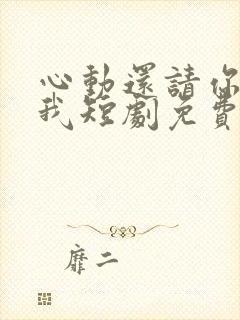 心動還請你
我短劇免費
靡二